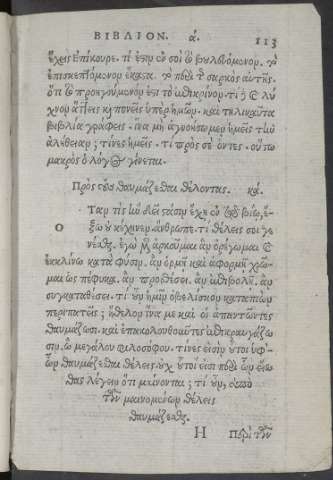 ΒΙΒΛΙΟΝ. ά. 113
ἔχεις ἐπίκουρε. τί ἐστιν ἐν σοὶ τὸ βουλευόμενον. τὸ
ἐπισκεπτόμενον ἕκαστα. τὸ περὶ τῆς σαρκὸς αὐτῆς.
ὅτι τὸ προηγούμενον ἐστὶ τὸ ἐπικρίνον. τί δὲ καὶ λύ
χνον ἅπτεις κὶ πονεῖς ὑπὲρ ἡμῶν. καὶ τηλικαῦτα
βιβλία γράφεις. ἵνα μὴ ἀγνοήσωμεν ἡμεῖς τὴν
ἀλήθειαν; τίνες ἡμεῖς. τί πρὸς σὲ ὄντες. οὕτω
μακρὸς ὁ λόγος γίνεται.
Πρὸς τοὺς θαυμάζεσθαι θέλοντας. κά.
Ο Ταν τὶς ἣν δεῖ στάσιν ἔχῃ ἐν τῷ βίῳ, ἔ-
ξω οὐ κέχηνεν. ἄνθρωπε. τί θέλεις σοι γε
νέσθαι. ἐγὼ μὲν ἀρκοῦμαι ἂν ὀρέγωμαι καὶ
ἐκκλίνω κατὰ φύσιν. ἂν ὁρμῇ καὶ ἀφορμῇ χρῶ-
μαι ὡς πέφυκα. ἂν προθέσει. ἂν ἐπιβολῇ. ἂν
συγκαταθέσει. τί οὖν ἡμῖν ὀβελίσκον καταπιὼν
περιπατεῖς; ἤθελον ἵνα με καὶ οἱ ἀπαντῶντες
θαυμάζωσι. καὶ ἐπακολουθοῦντες ἐπικραυγάζω
σιν. ὦ μεγάλου φιλοσόφου. τίνες εἰσὶν οὗτοι ὑφ’
ὧν θαυμάζεσθαι θέλεις. οὐχ οὗτοί εἰσι περὶ ὧν εἴω
θας λέγειν ὅτι μαίνονται; τί οὖν, ὑπὸ
τῶν μαινομένων θέλεις
θαυμάζεσθαι.
Η Περὶ τῶν